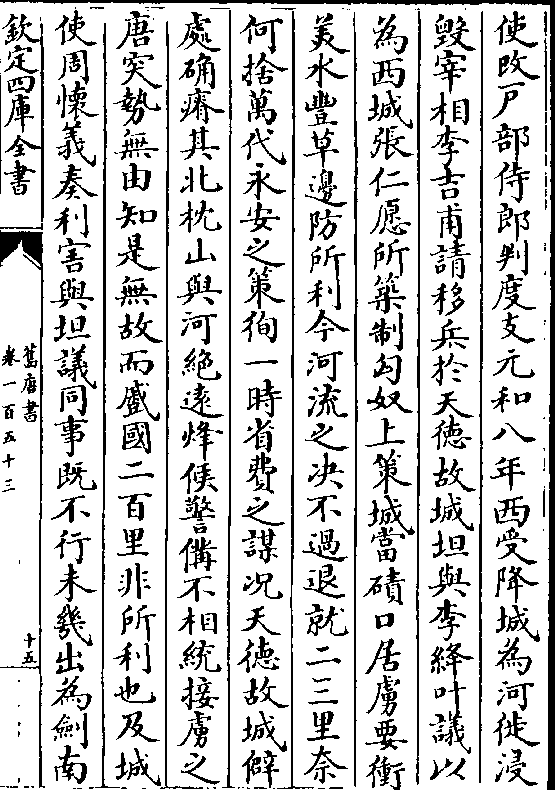 使改戸部侍郎判度支元和八年西受降城為河徙浸
毀宰相李吉甫請移兵於天徳故城坦與李絳叶議以
為西城張仁愿所築制匈奴上策城當磧口居虜要衝
美水豐草邊防所利今河流之决不過退就二三里奈
何捨萬代永安之策徇一時省費之謀况天徳故城僻
處确瘠其北枕山與河絶逺烽候警備不相統接虜之
唐突勢無由知是無故而蹙國二百里非所利也及城
使周懷義奏利害與坦議同事既不行未幾出為劍南
欽定四庫全書
舊唐書
卷一百五十三
十五